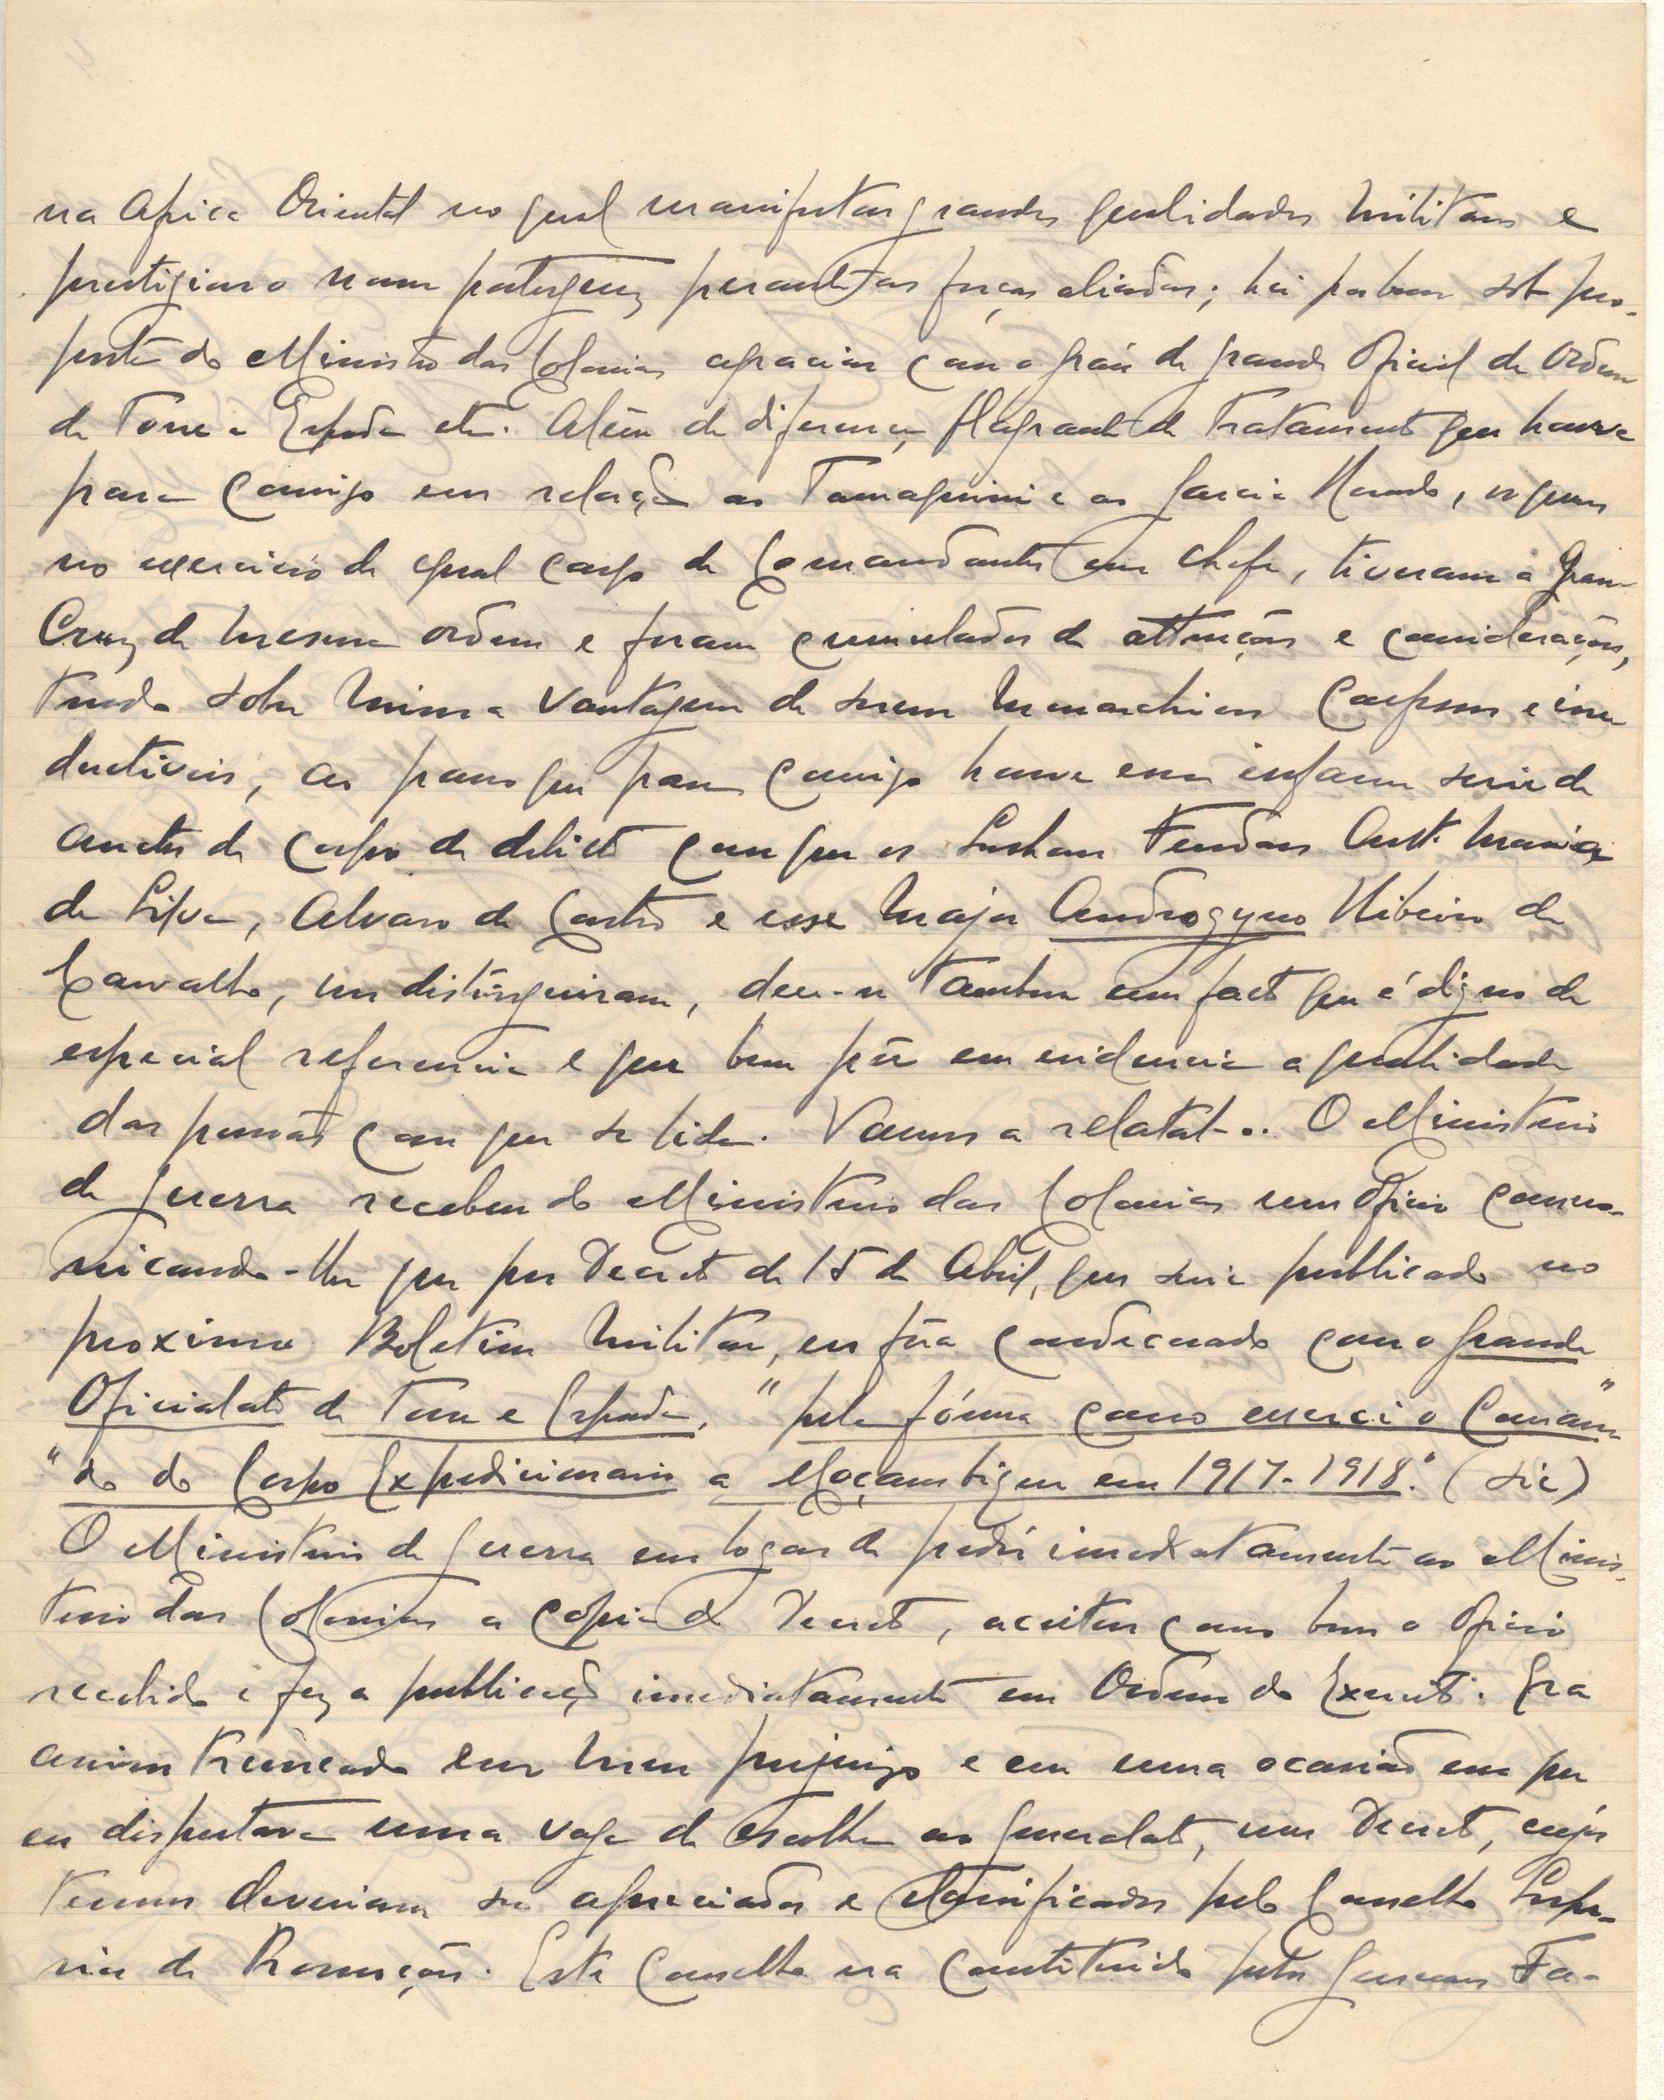 na Africa Oriental no qual manifestou grandes qualidades militares e
prestigiou o nome portuguez perante as forças aliadas; hei por bem sob pro-
posta do Ministro das Colonias agraciar com o gráu de grande Oficial da Ordem
da Torre e Espada etc. Além da diferença flagrante de tratamento que houve
para comigo em relação ao Tamagnini e ao Garcia Rosado, os quaes
no exercicio de egual cargo de Comandantes em chefe, tiveram a Gran
Cruz da mesma ordem e foram cumulados de attenções e considerações,
tendo sobre mim a vantagem de serem monarchicos
ao passo que para comigo houve uma infame serie de
autos de corpo de delicto com que os Ant. Maria
da Silva, Alvaro de Castro e esse major Androgyno Ribeiro de
Carvalho, me distinguiram, deu-se tambem um facto que é digno de
especial referencia e que bem põe em evidencia a qualidade
das pessoas com que se lida. Vamos a relatal-o. O Ministerio
da Guerra recebeu do Ministerio das Colonias um oficio comu-
nicando-lhe que por Decreto de 15 de Abril, que seria publicado no
proximo Boletim Militar, eu fôra condecorado com o grande
Oficialato da Torre e Espada, "pela fórma como exerci o Coman-"
"do do Corpo Expedicionario a Moçambique em 1917-1918". (sic)
O Ministerio da Guerra em logar de pedir imediatamente ao Minis-
terio das Colonias a copia do Decreto, aceitou como bom o oficio
recebido e fez a publicação imediatamente em Ordem do Exercito. Era
assim truncado em meu prejuizo e em uma ocasião em que
eu disputava uma vaga de escolha ao generalato, um Decreto, cujos
termos deveriam ser apreciados e classificados pelo Conselho Supe-
rior de Promoções. Este Conselho era constituido pelos Generaes